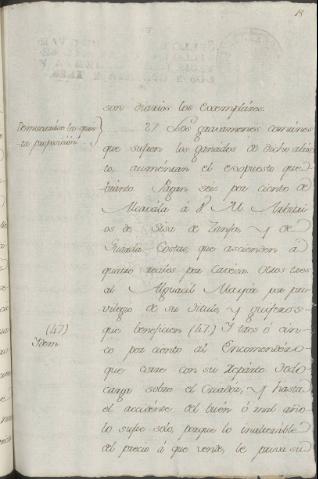 18
son diarios los exemplares.
Demuestrase la quar-
ta proposicion
27 Los gravamenes comunes
que sufren los ganados de dicho abas-
to, aumentan el expuesto que-
branto. Pagan seis por ciento de
Alcavala á S. M.
os de Sisa de Zanja, y de
Guarda Costas, que ascienden á
quatro reales por Cabeza. Otros tres
al Alguacil Mayor por pri-
vilegio de su titulo, y
(47)
Idem
que beneficien (47) Y tres ó cin-
co por ciento al Encomendero
que corre con su expendio. Todo
carga sobre el Criador, y hasta
el accidente del buen ó mal año
lo sufre solo, porque lo inalterable
del precio á que vende, le priva su